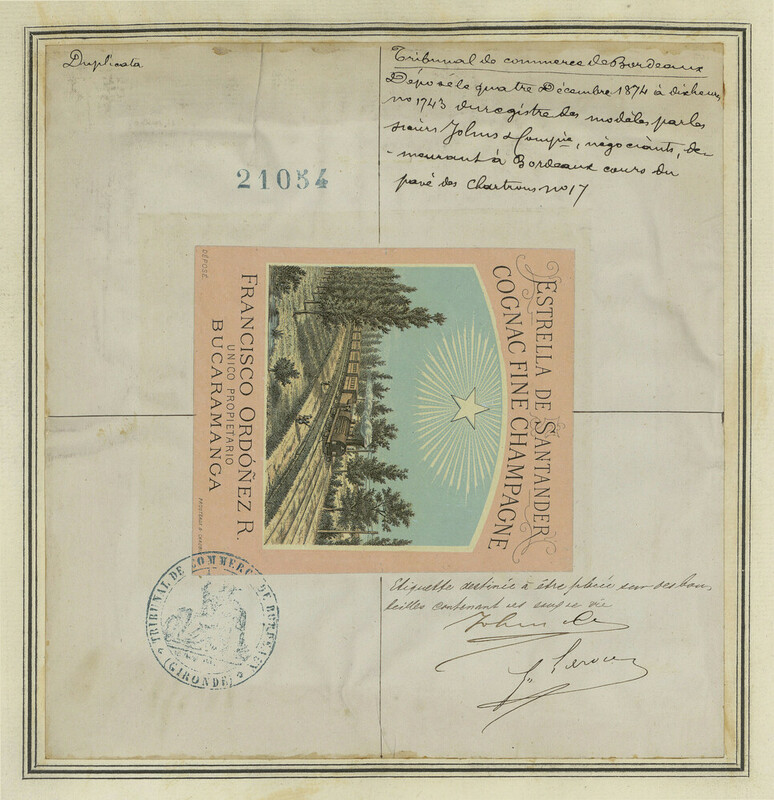 Duplicata
Tribunal de commerce de Bordeaux
Déposé le quatre Décembre 1874 à dix heures
no 1743 du registre des modèles par les
sieurs Johns & Compie, négociants, de-
-meurant à Bordeaux cours du
pavé des Chartrons no 17
21054
ESTRELLA DE SANTANDER
COGNAC FINE CHAMPAGNE
FRANCISCO ORDÓÑEZ R.
UNICO PROPIETARIO
BUCARAMANGA
DÉPOSÉ
TRIBUNAL DE COMMERCE DE BORDEAUX
(GIRONDE)
Etiquette destinée à être placée sur des bou-
teilles contenant